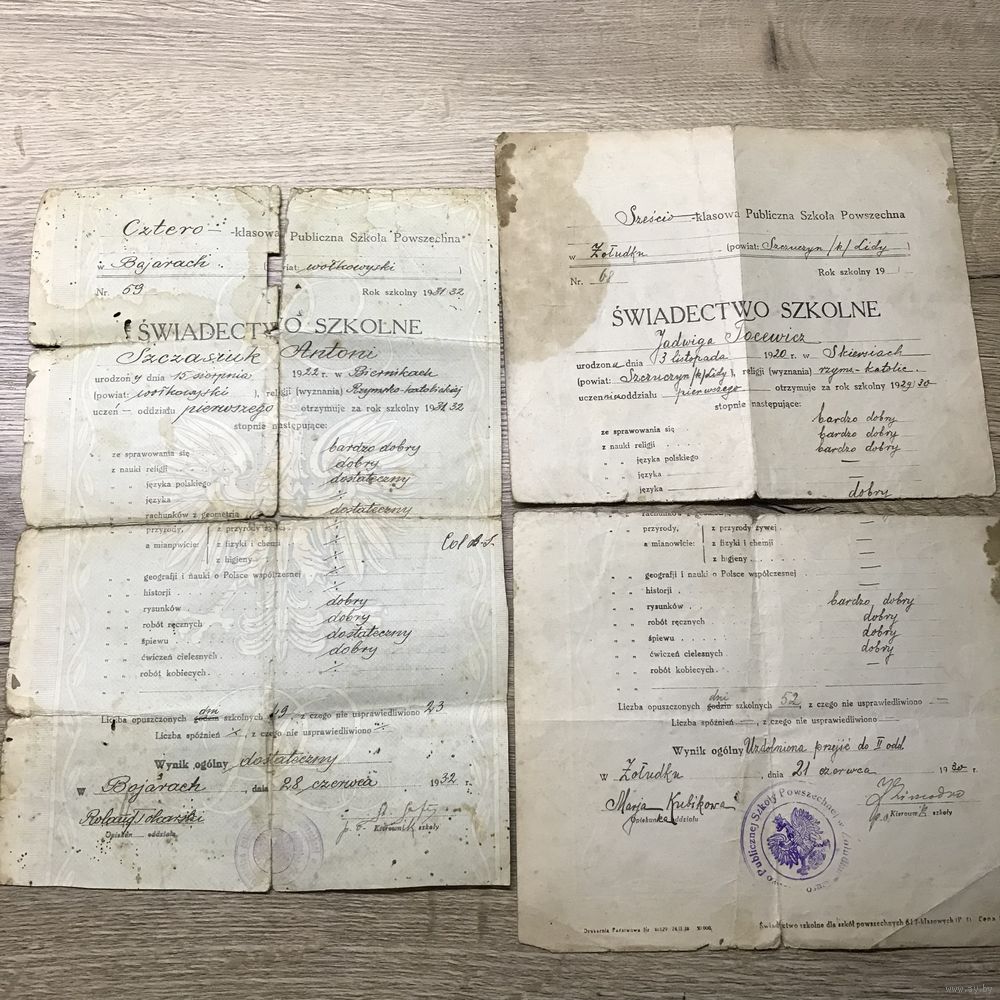 Cztero -klasowa Publiczna Szkoła Powszechna
w Bojarach (powiat: wołkowyski)
Nr. 69 Rok szkolny 1931/32
ŚWIADECTWO SZKOLNE
Szczasiuk Antoni
urodzony dnia 15 sierpnia 1922 r. w Biernikach
(powiat: wołkowyski), religji (wyznania) Rzymsko-katolickiej
uczeń — oddziału pierwszego otrzymuje za rok szkolny 1931/32
stopnie następujące:
ze sprawowania się bardzo dobry
z nauki religji dobry
" " języka polskiego dostateczny
" " języka
" " rachunków z geometrją dostateczny
przyrody, z przyrody żywej
a mianowicie: z fizyki i chemji
z higjeny
Col B-S.
" " geografji i nauki o Polsce współczesnej
" " historji
" " rysunków dobry
" " robót ręcznych dobry
" " śpiewu dostateczny
" " ćwiczeń cielesnych dobry
" " robót kobiecych
Liczba opuszczonych godzin dni szkolnych 49, z czego nie usprawiedliwiono 23
Liczba spóźnień, z czego nie usprawiedliwiono
Wynik ogólny dostateczny
w Bojarach, dnia 28 czerwca 1932 r.
Roland
Opiekun oddziału
p. o. Kierownik szkoły
Sześcio-klasowa Publiczna Szkoła Powszechna
w Żołudku (powiat: Szczuczyn /k/ Lidy)
Nr. 68 Rok szkolny 19
ŚWIADECTWO SZKOLNE
Jadwiga Tocewicz
urodzona dnia 3 listopada 1920 r. w Skiewiach
(powiat: Szczuczyn /k/ Lidy), religji (wyznania) rzym.-katolic.
uczennica oddziału pierwszego otrzymuje za rok szkolny 1929/30
stopnie następujące:
ze sprawowania się bardzo dobry
z nauki religji bardzo dobry
" " języka polskiego bardzo dobry
" " języka —
" " języka
dobry
" " rachunków z geometrją
przyrody, z przyrody żywej
a mianowicie: z fizyki i chemji —
z higjeny —
" " geografji i nauki o Polsce współczesnej —
" " historji —
" " rysunków bardzo dobry
" " robót ręcznych dobry
" " śpiewu dobry
" " ćwiczeń cielesnych dobry
" " robót kobiecych —
Liczba opuszczonych godzin dni szkolnych 52, z czego nie usprawiedliwiono —
Liczba spóźnień —, z czego nie usprawiedliwiono —
Wynik ogólny Uzdolniona przejść do II odd.
w Żołudku, dnia 21 czerwca 1930 r.
Marja Kubikowa
Opiekunka oddziału
p.o. Kierownik szkoły
Publicznej Szkoły Powszechnej w
Drukarnia Państwowa Nr.
Świadectwo szkolne dla szkół powszechnych 6 i 7-klasowych Cena
www.ay.by